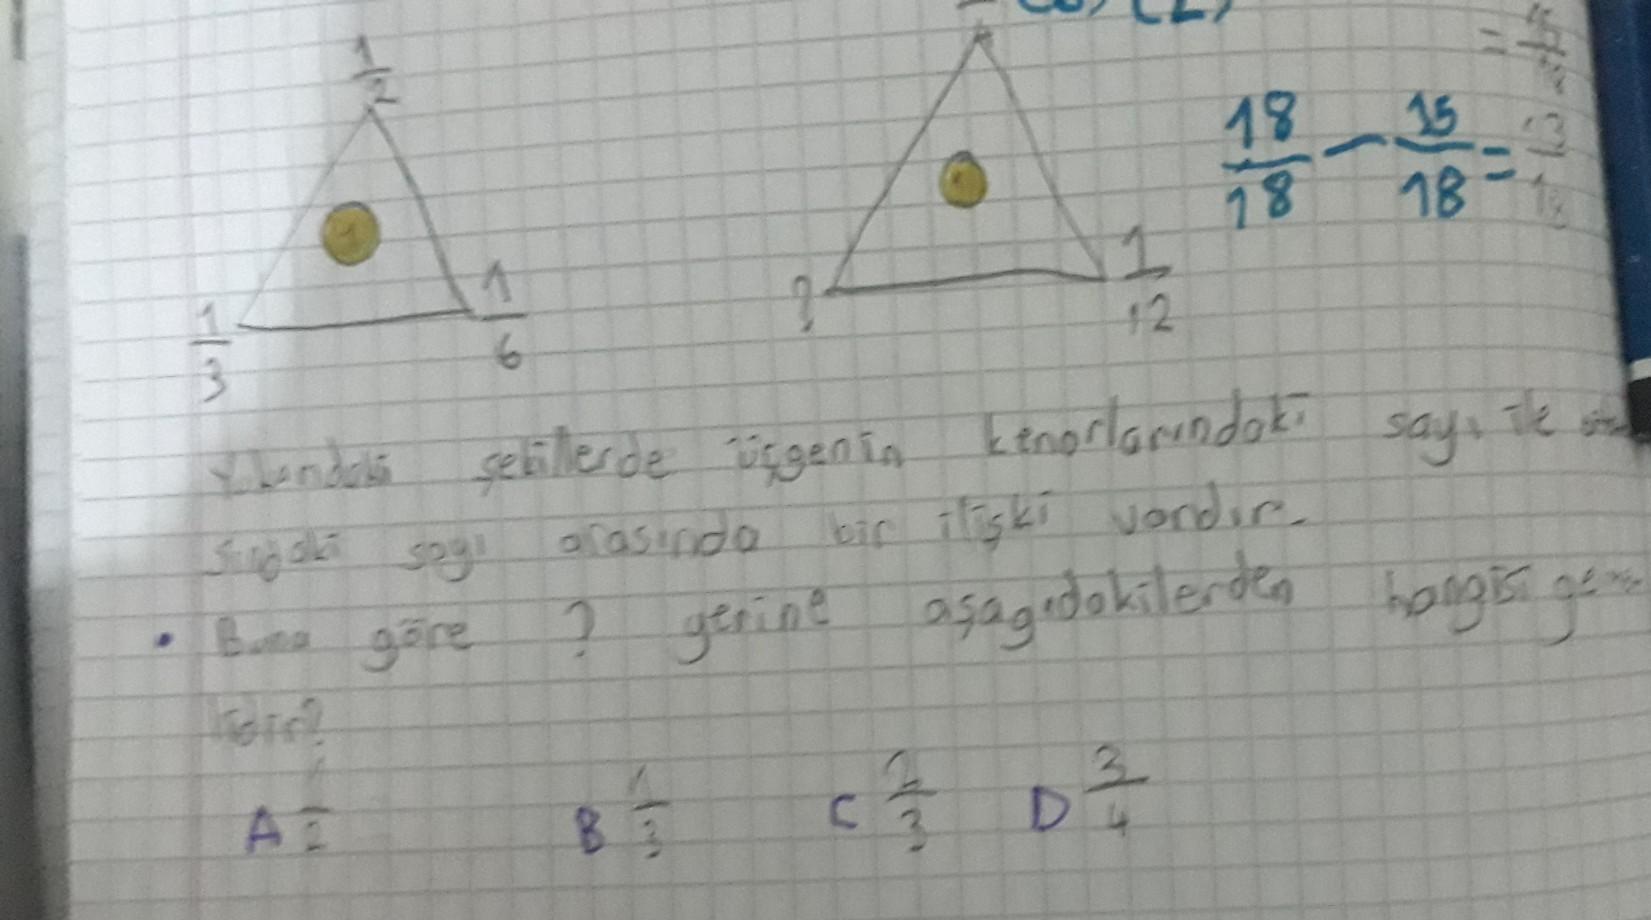 1/2
1/3
1/6
1
?
1/12
18/18 - 15/18 =
şekillerde üçgenin kenarlarındaki sayı ile
sayı arasında bir ilişki vardır.
• Buna göre ? yerine aşağıdakilerden hangisi
A 1/2 B 1/3 C 2/3 D 3/4